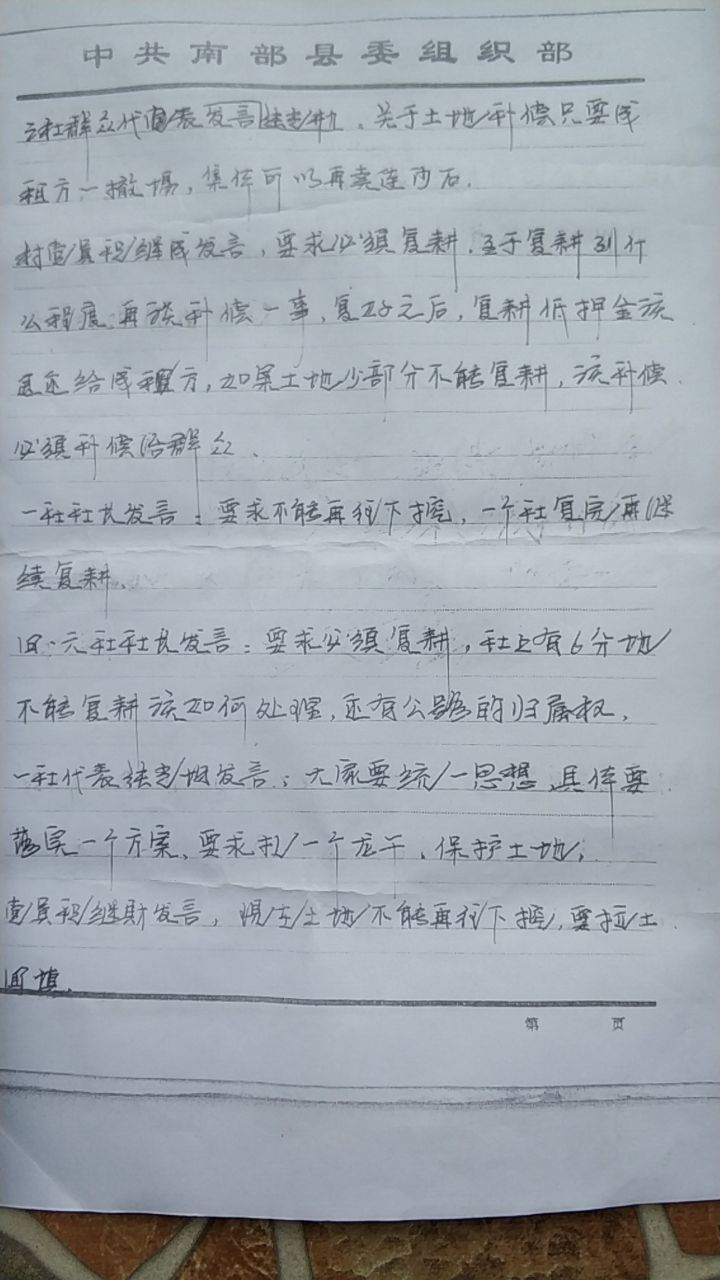 中共南部县委组织部
社群众代表发言，关于土地补偿只要成
租方一撤场，集体可以再卖连沙石，
村党员程继成发言，要求必须复耕，至于复耕到什
么程度再谈补偿一事，复好之后，复耕低押金该
退还给成租方，如果土地少部分不能复耕，该补偿
必须补偿给群众、
一社社长发言：要求不能再往下挖，一个社复完再继
续复耕、
四·六社社长发言：要求必须复耕，社上有6分地
不能复耕该如何处理，还有公路的归属权，
一社代表发言：大家要统一思想、具体要
落实一个方案、要求打一个龙干、保护土地；
党员程继财发言，现在土地不能再往下挖，要拉土
回填、
第 页